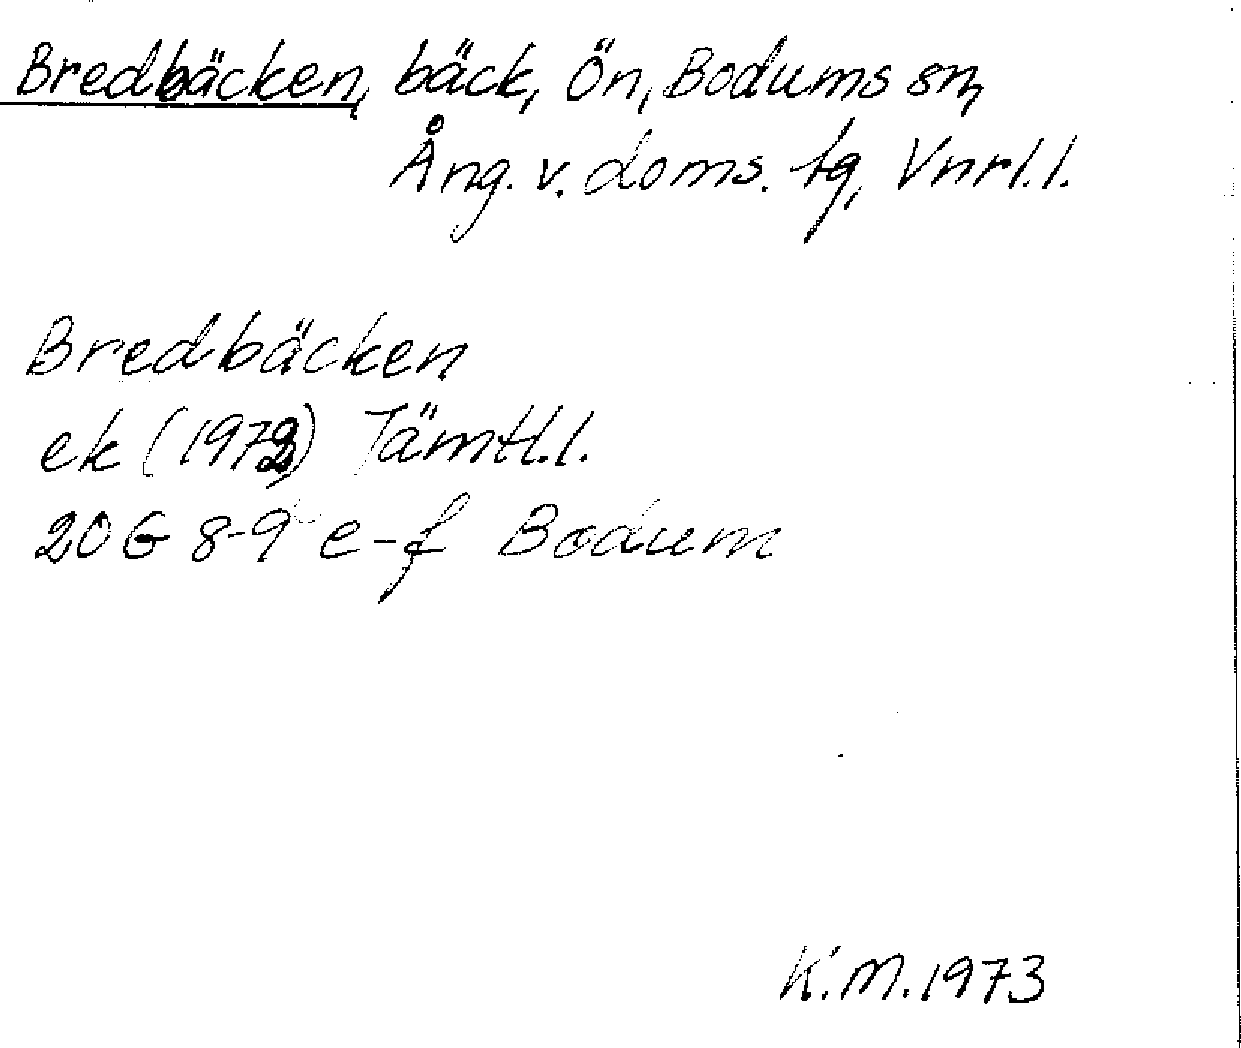 Bredbäcken, bäck, Ön, Bodums sn,
Ång. v. doms. tg, Vnrl.l.
Bredbäcken
ek (1972) Jämtl.l.
20 G 8-9 e-f Bodum
K.M. 1973